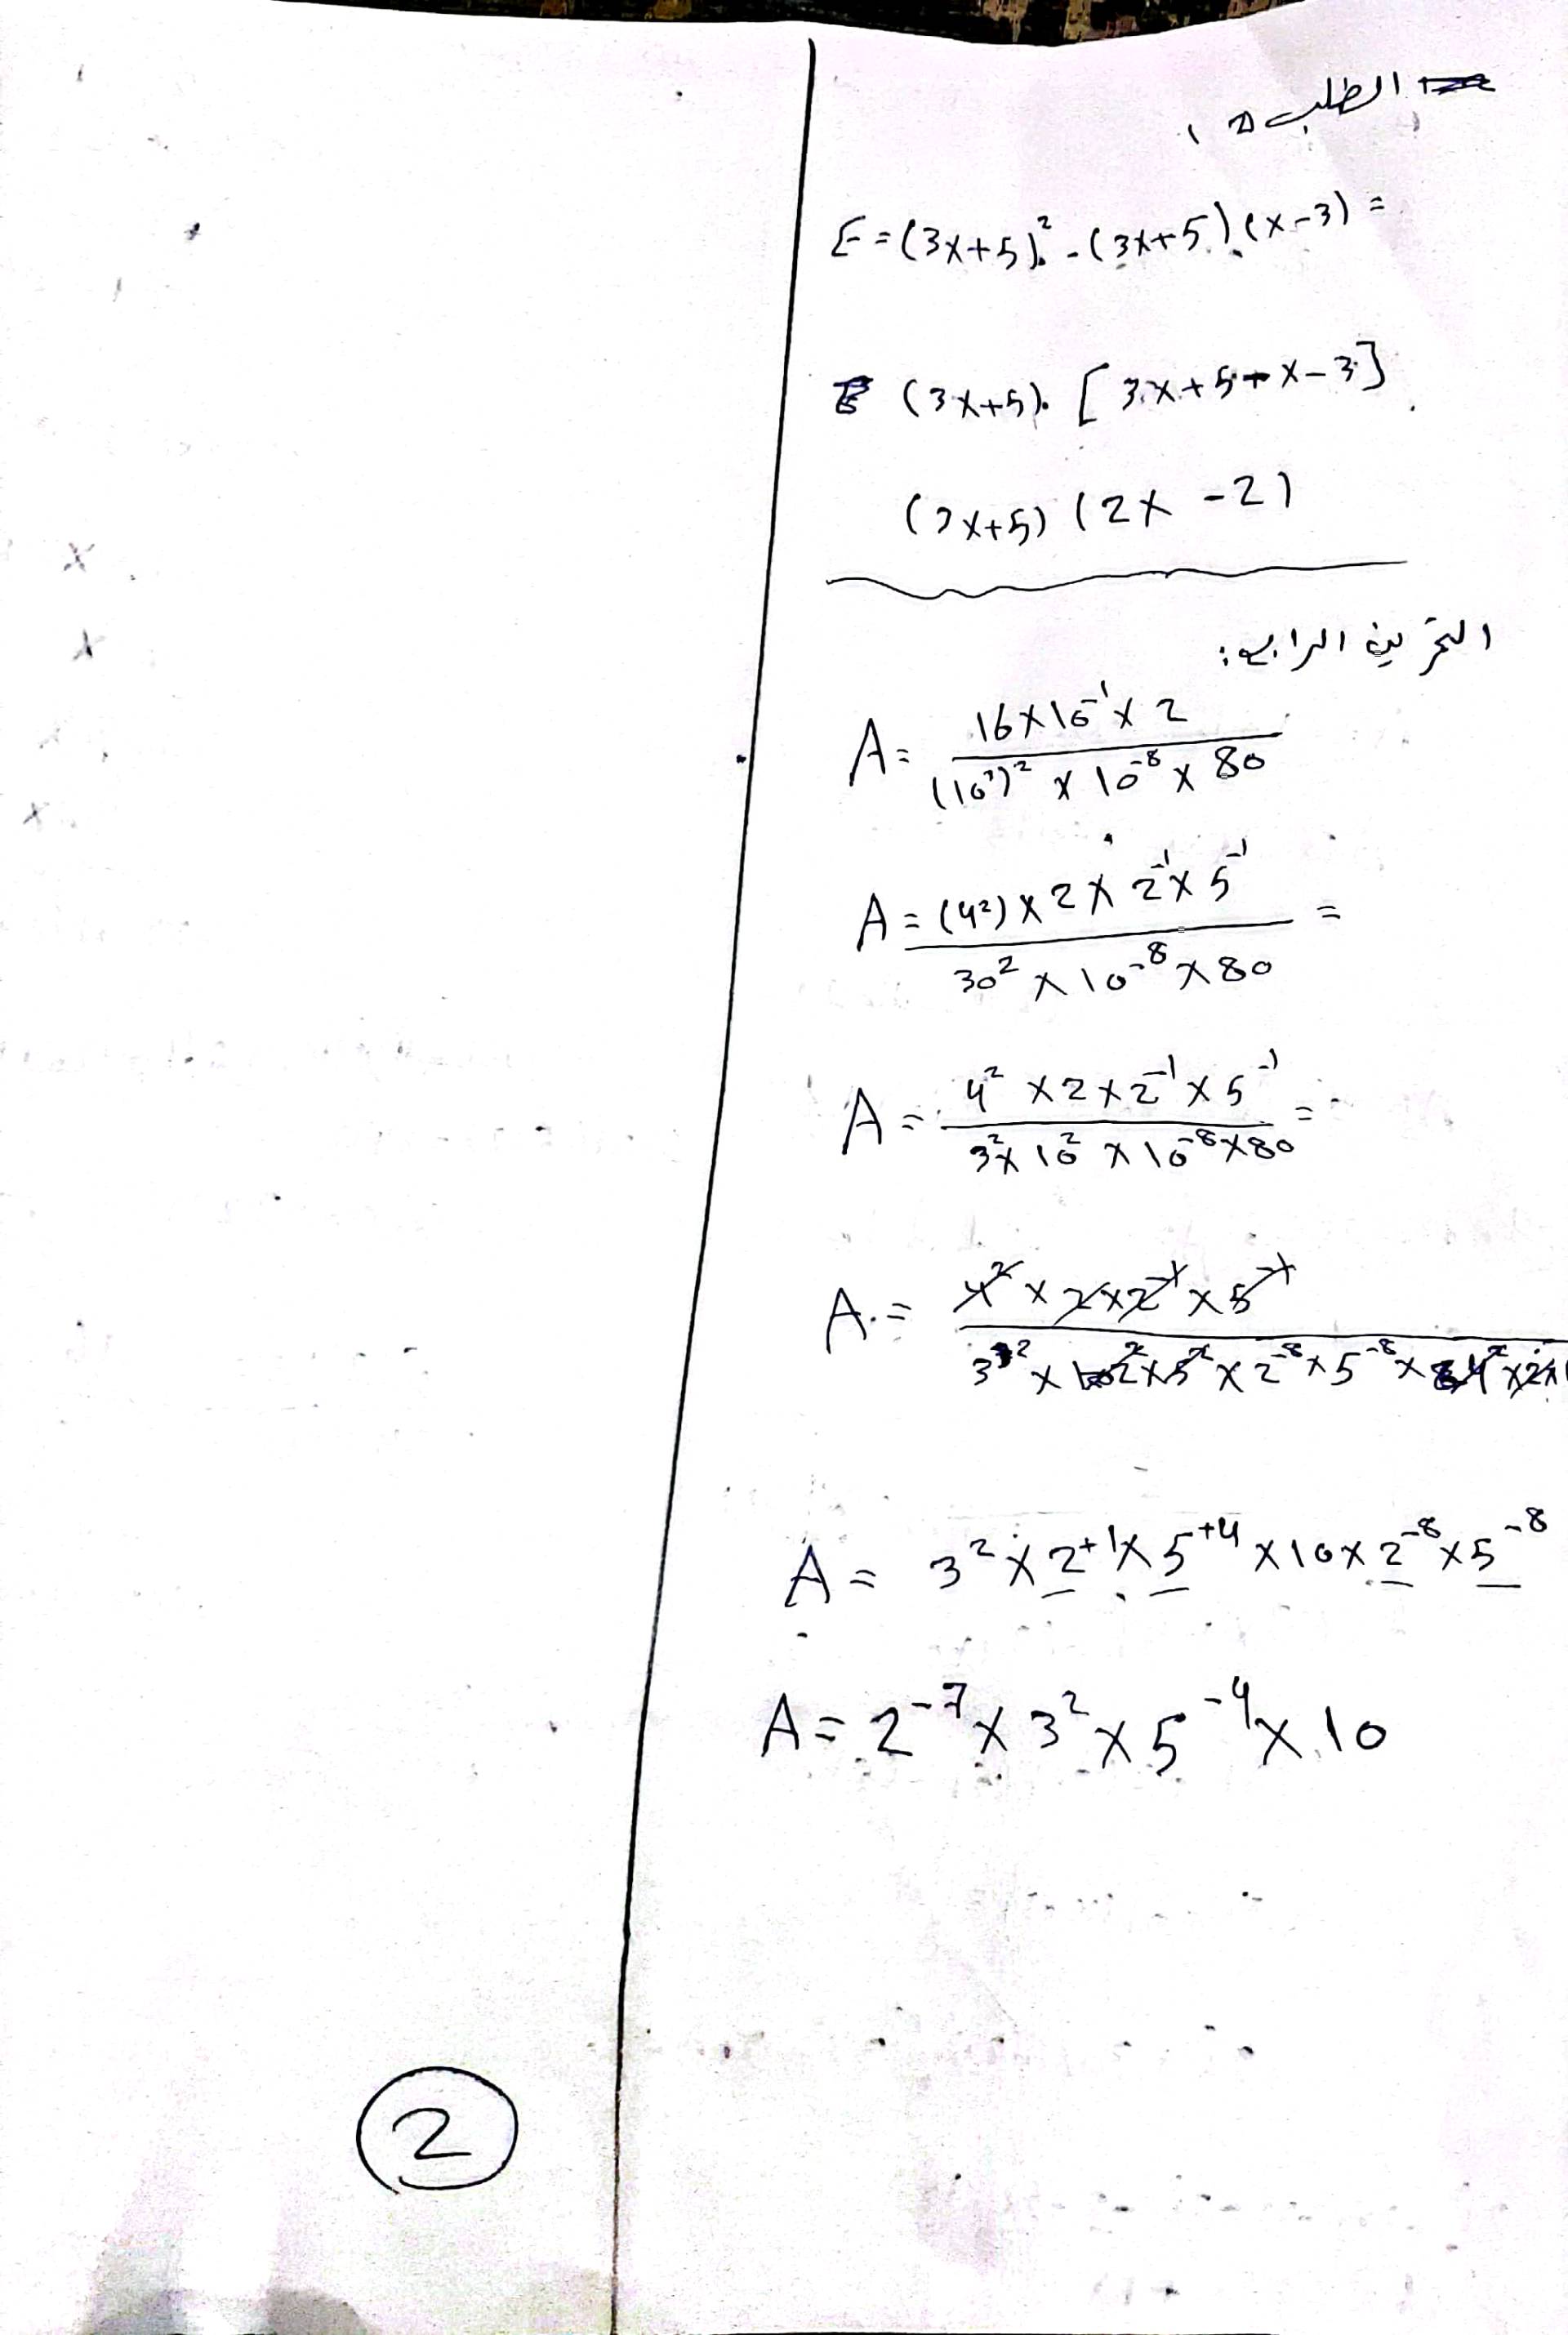 الطلب 1
E = (3x+5)² - (3x+5)(x-3) =
(3x+5). [3x+5+x-3]
(3x+5) (2x -2)
التمرين الرابع:
A = 16×10⁻¹×2 / (10³)² × 10⁻⁸ × 80
A = (4²) × 2 × 2⁻¹ × 5⁻¹ / 30² × 10⁻⁸ × 80 =
A = 4² × 2 × 2⁻¹ × 5⁻¹ / 3² × 10² × 10⁻⁸ × 80 =
A = 4² × 2 × 2⁻¹ × 5⁻¹ / 3² × 2² × 5² × 2⁻⁸ × 5⁻⁸ × 4² × 2 ×
A = 3² × 2⁺¹ × 5⁺⁴ × 10 × 2⁻⁸ × 5⁻⁸
A = 2⁻⁷ × 3² × 5⁻⁴ × 10
2